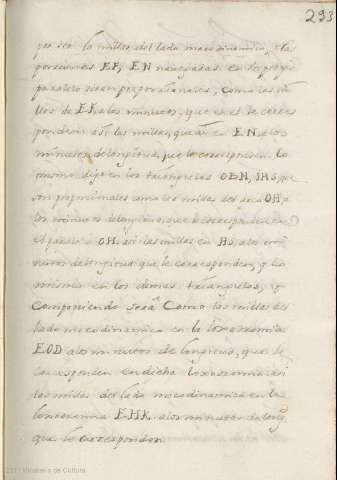 293
por ser la millas del lado mecodinamico, y las
porciones EF, EN navegadas en un propio
paralelo seran proporcionales, como las mi
llas de EF a los minutos, que en el le corres
ponden: asi las millas, que ai en EN, a los
minutos de longitud, que le corresponden. Lo
mismo digo en los triangulos OBH, SHS, que
son proporcionales como las millas del arco OH a
los minutos de longitud que le corresponden en
el paralelo OH. asi las millas en HS, a los mi
nutos de longitud que le corresponden, y lo
mismo en los demas triangulos, y
componiendo será Como las millas del
lado mecodinamico en la loxodromia
EOD a los minutos de longitud, que le
corresponden en dicha loxodromia: asi
las millas del lado mecodinamico en la
loxodromia EHK. a los minutos de long.d
que le corresponden.
Ministerio de Cultura